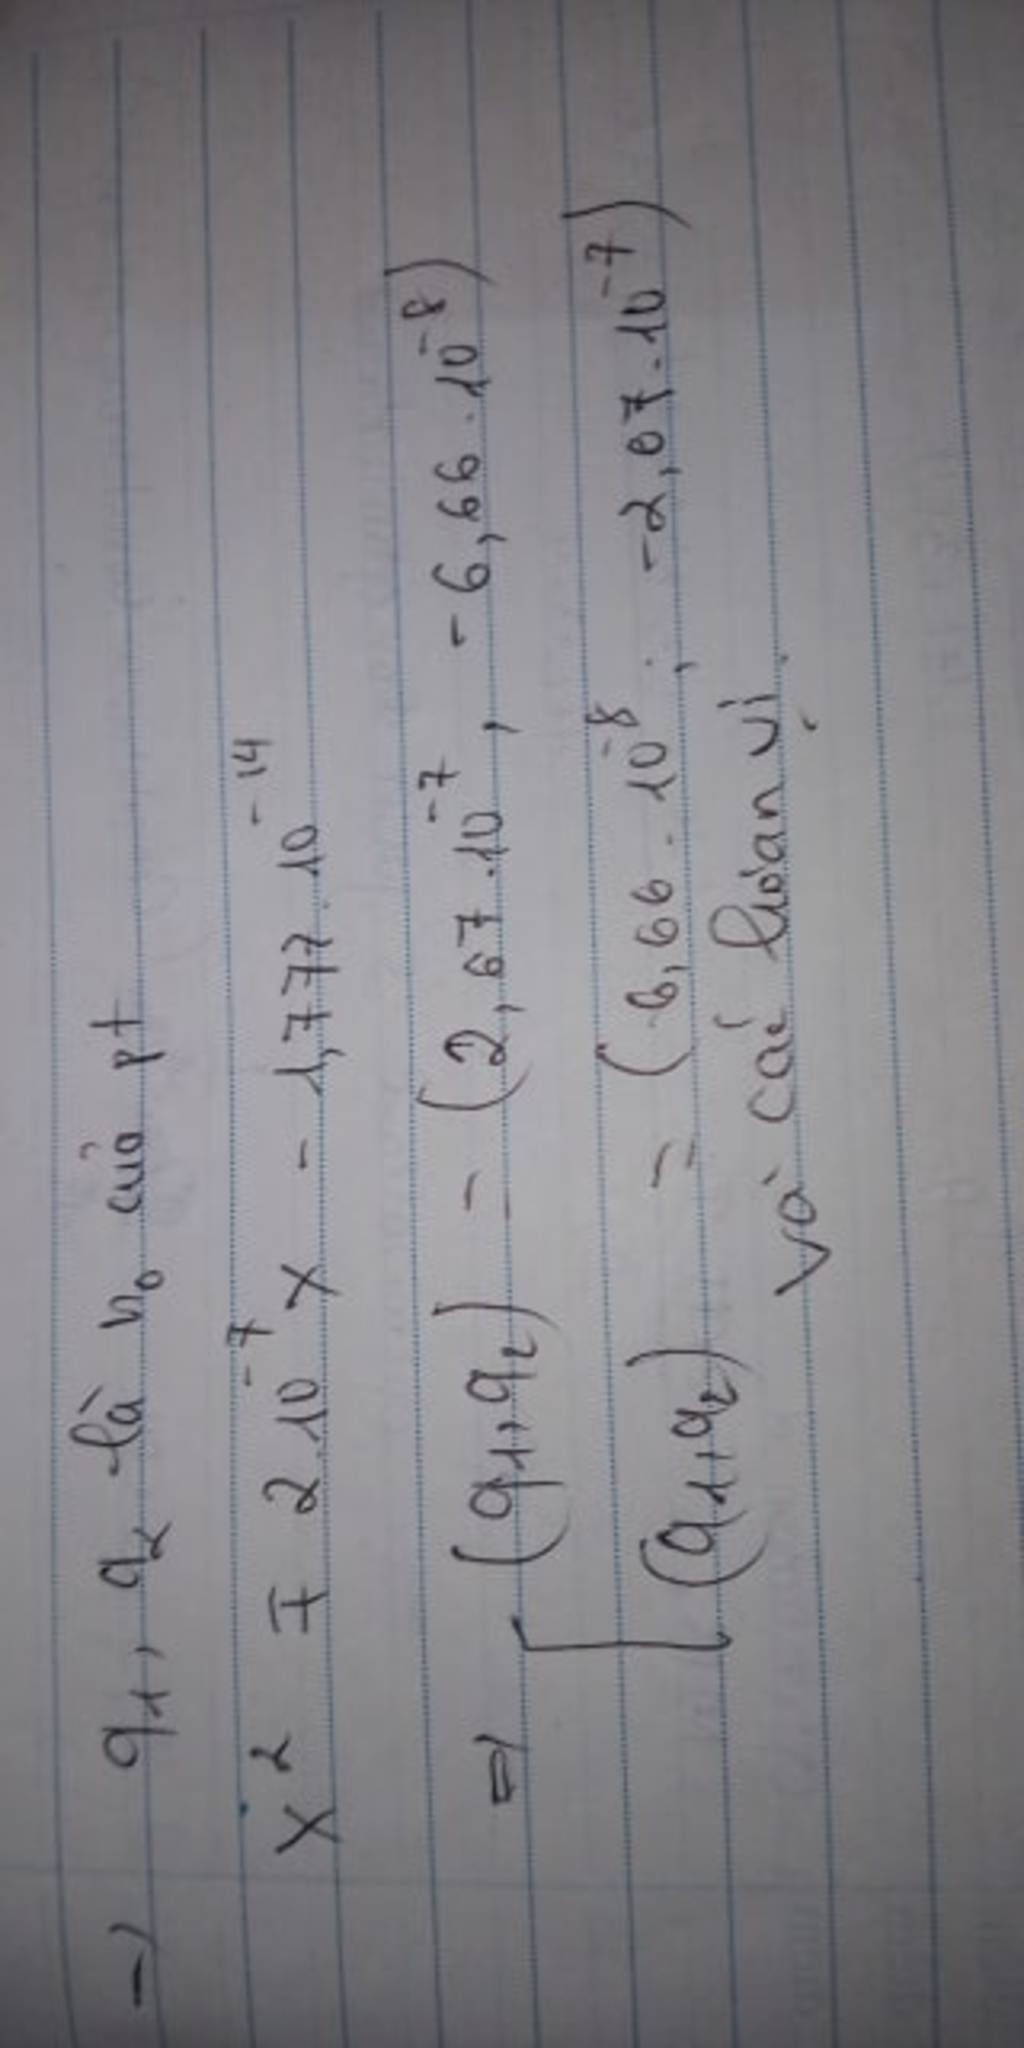 → q₁, q₂ là n₀ của pt
x² ∓ 2.10⁻⁷ x - 1,777.10⁻¹⁴
⇒ [ (q₁, q₂) = (2,67.10⁻⁷, -6,66.10⁻⁸)
(q₁, q₂) = (6,66.10⁻⁸; -2,67.10⁻⁷)
và các hoán vị.